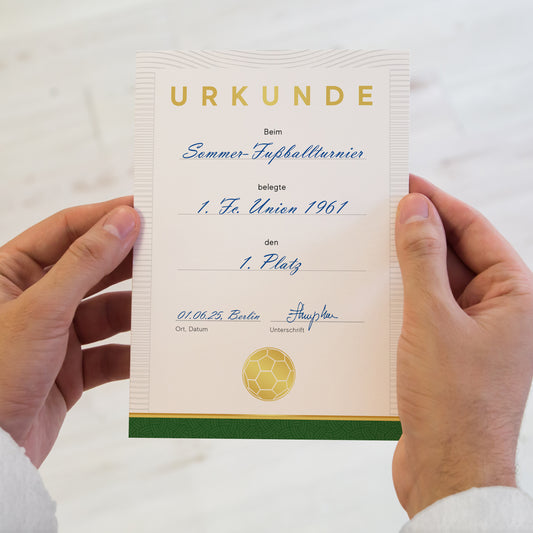 URKUNDE
Beim
Sommer-Fußballturnier
belegte
1. Fc. Union 1961
den
1. Platz
01.06.25, Berlin
Ort, Datum
Unterschrift